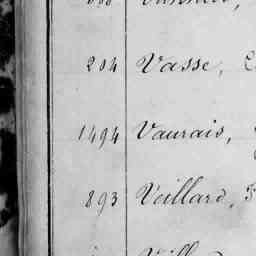 204 Vasse,
1494 Vaurais,
893 Veillard,